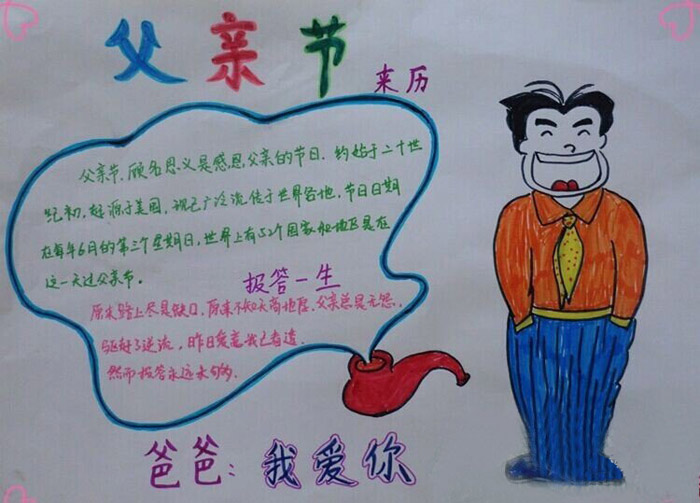 父亲节
来历
父亲节,顾名思义是感恩父亲的节日.约始于二十世
纪初,起源于美国,现已广泛流传于世界各地,节日日期
在每年6月的第三个星期日,世界上有52个国家和地区是在
这一天过父亲节。
报答一生
原来路上尽是缺口,原来不知天高地厚,父亲总是无怨,
昨日爱意我已看透.
然而报答永远未够的.
爸爸:我爱你